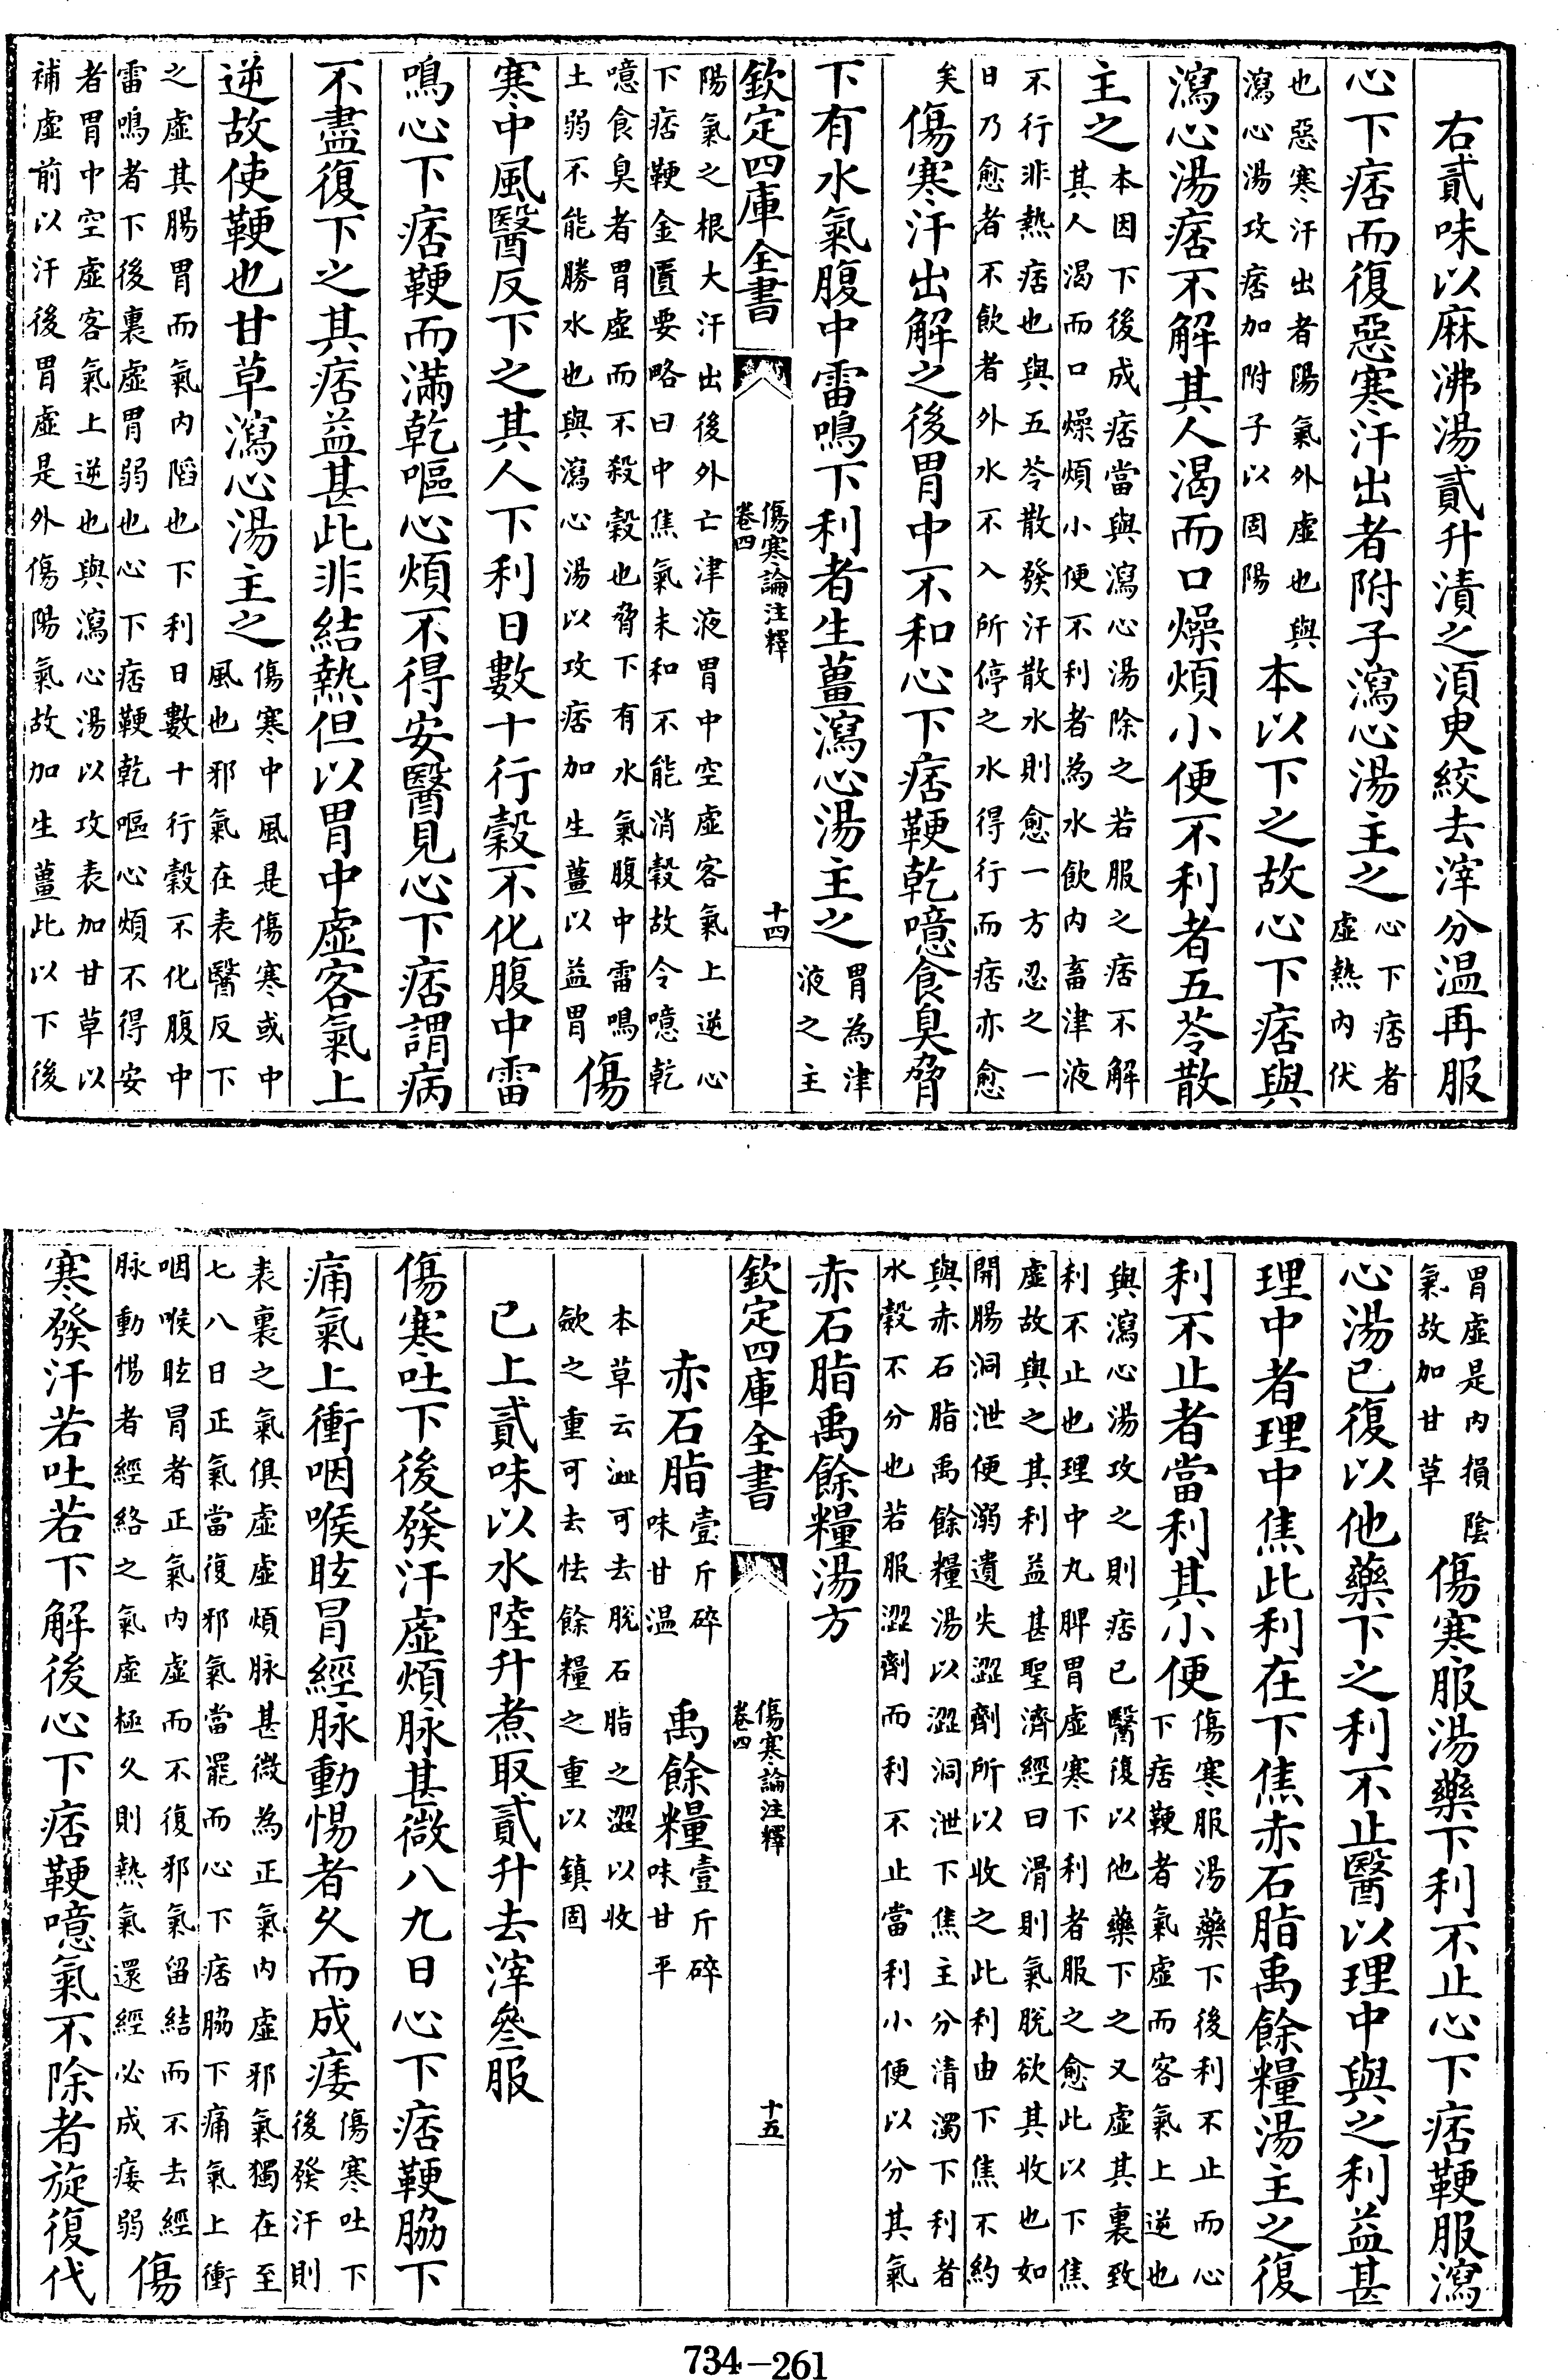 右貳味以麻沸湯貳升漬之須臾絞去滓分温再服
心下痞而復惡寒汗出者附子瀉心湯主之心下痞者虛熱内伏
也惡寒汗出者陽氣外虛也與瀉心湯攻痞加附子以固陽本以下之故心下痞與
瀉心湯痞不解其人渴而口燥煩小便不利者五苓散
主之本因下後成痞當與瀉心湯除之若服之痞不解其人渴而口燥煩小便不利者為水飲内畜津液
不行非熱痞也與五苓散發汗散水則愈一方忍之一日乃愈者不飲者外水不入所停之水得行而痞亦愈
矣傷寒汗出解之後胃中不和心下痞鞕乾噫食臭脅
下有水氣腹中雷鳴下利者生薑瀉心湯主之胃為津液之主
欽定四庫全書 傷寒論注釋卷四 十四
陽氣之根大汗出後外亡津液胃中空虛客氣上逆心下痞鞕金匱要略曰中焦氣未和不能消穀故令噫乾
噫食臭者胃虛而不殺穀也脅下有水氣腹中雷鳴土弱不能勝水也與瀉心湯以攻痞加生薑以益胃傷
寒中風醫反下之其人下利日數十行穀不化腹中雷
鳴心下痞鞕而滿乾嘔心煩不得安醫見心下痞謂病
不盡復下之其痞益甚此非結熱但以胃中虛客氣上
逆故使鞕也甘草瀉心湯主之傷寒中風是傷寒或中風也邪氣在表醫反下
之虛其腸胃而氣内䧟也下利日數十行穀不化腹中雷鳴者下後裏虛胃弱也心下痞鞕乾嘔心煩不得安
者胃中空虛客氣上逆也與瀉心湯以攻表加甘草以補虛前以汗後胃虛是外傷陽氣故加生薑此以下後
胃虛是内損陰氣故加甘草傷寒服湯藥下利不止心下痞鞕服瀉
心湯已復以他藥下之利不止醫以理中與之利益甚
理中者理中焦此利在下焦赤石脂禹餘糧湯主之復
利不止者當利其小便傷寒服湯藥下後利不止而心下痞鞕者氣虛而客氣上逆也
與瀉心湯攻之則痞已醫復以他藥下之又虛其裏致利不止也理中丸脾胃虛寒下利者服之愈此以下焦
虛故與之其利益甚聖濟經曰滑則氣脫欲其收也如開腸洞泄便溺遺失澀劑所以收之此利由下焦不約
與赤石脂禹餘糧湯以澀洞泄下焦主分清濁下利者水穀不分也若服澀劑而利不止當利小便以分其氣
赤石脂禹餘糧湯方
欽定四庫全書 傷寒論注釋卷四 十五
赤石脂壹斤碎味甘温 禹餘糧壹斤碎味甘平
本草云澁可去脫石脂之澀以收斂之重可去怯餘糧之重以鎮固
已上貳味以水陸升煮取貳升去滓叄服
傷寒吐下後發汗虛煩脉甚微八九日心下痞鞕脇下
痛氣上衝咽喉眩冒經脉動惕者久而成痿傷寒吐下後發汗則
表裏之氣俱虛虛煩脉甚微為正氣内虛邪氣獨在至七八日正氣當復邪氣當罷而心下痞脇下痛氣上衝
咽喉眩冒者正氣内虛而不復邪氣留結而不去經脉動惕者經絡之氣虛極久則熱氣還經必成痿弱傷
寒發汗若吐若下解後心下痞鞕噫氣不除者旋復代
734-261